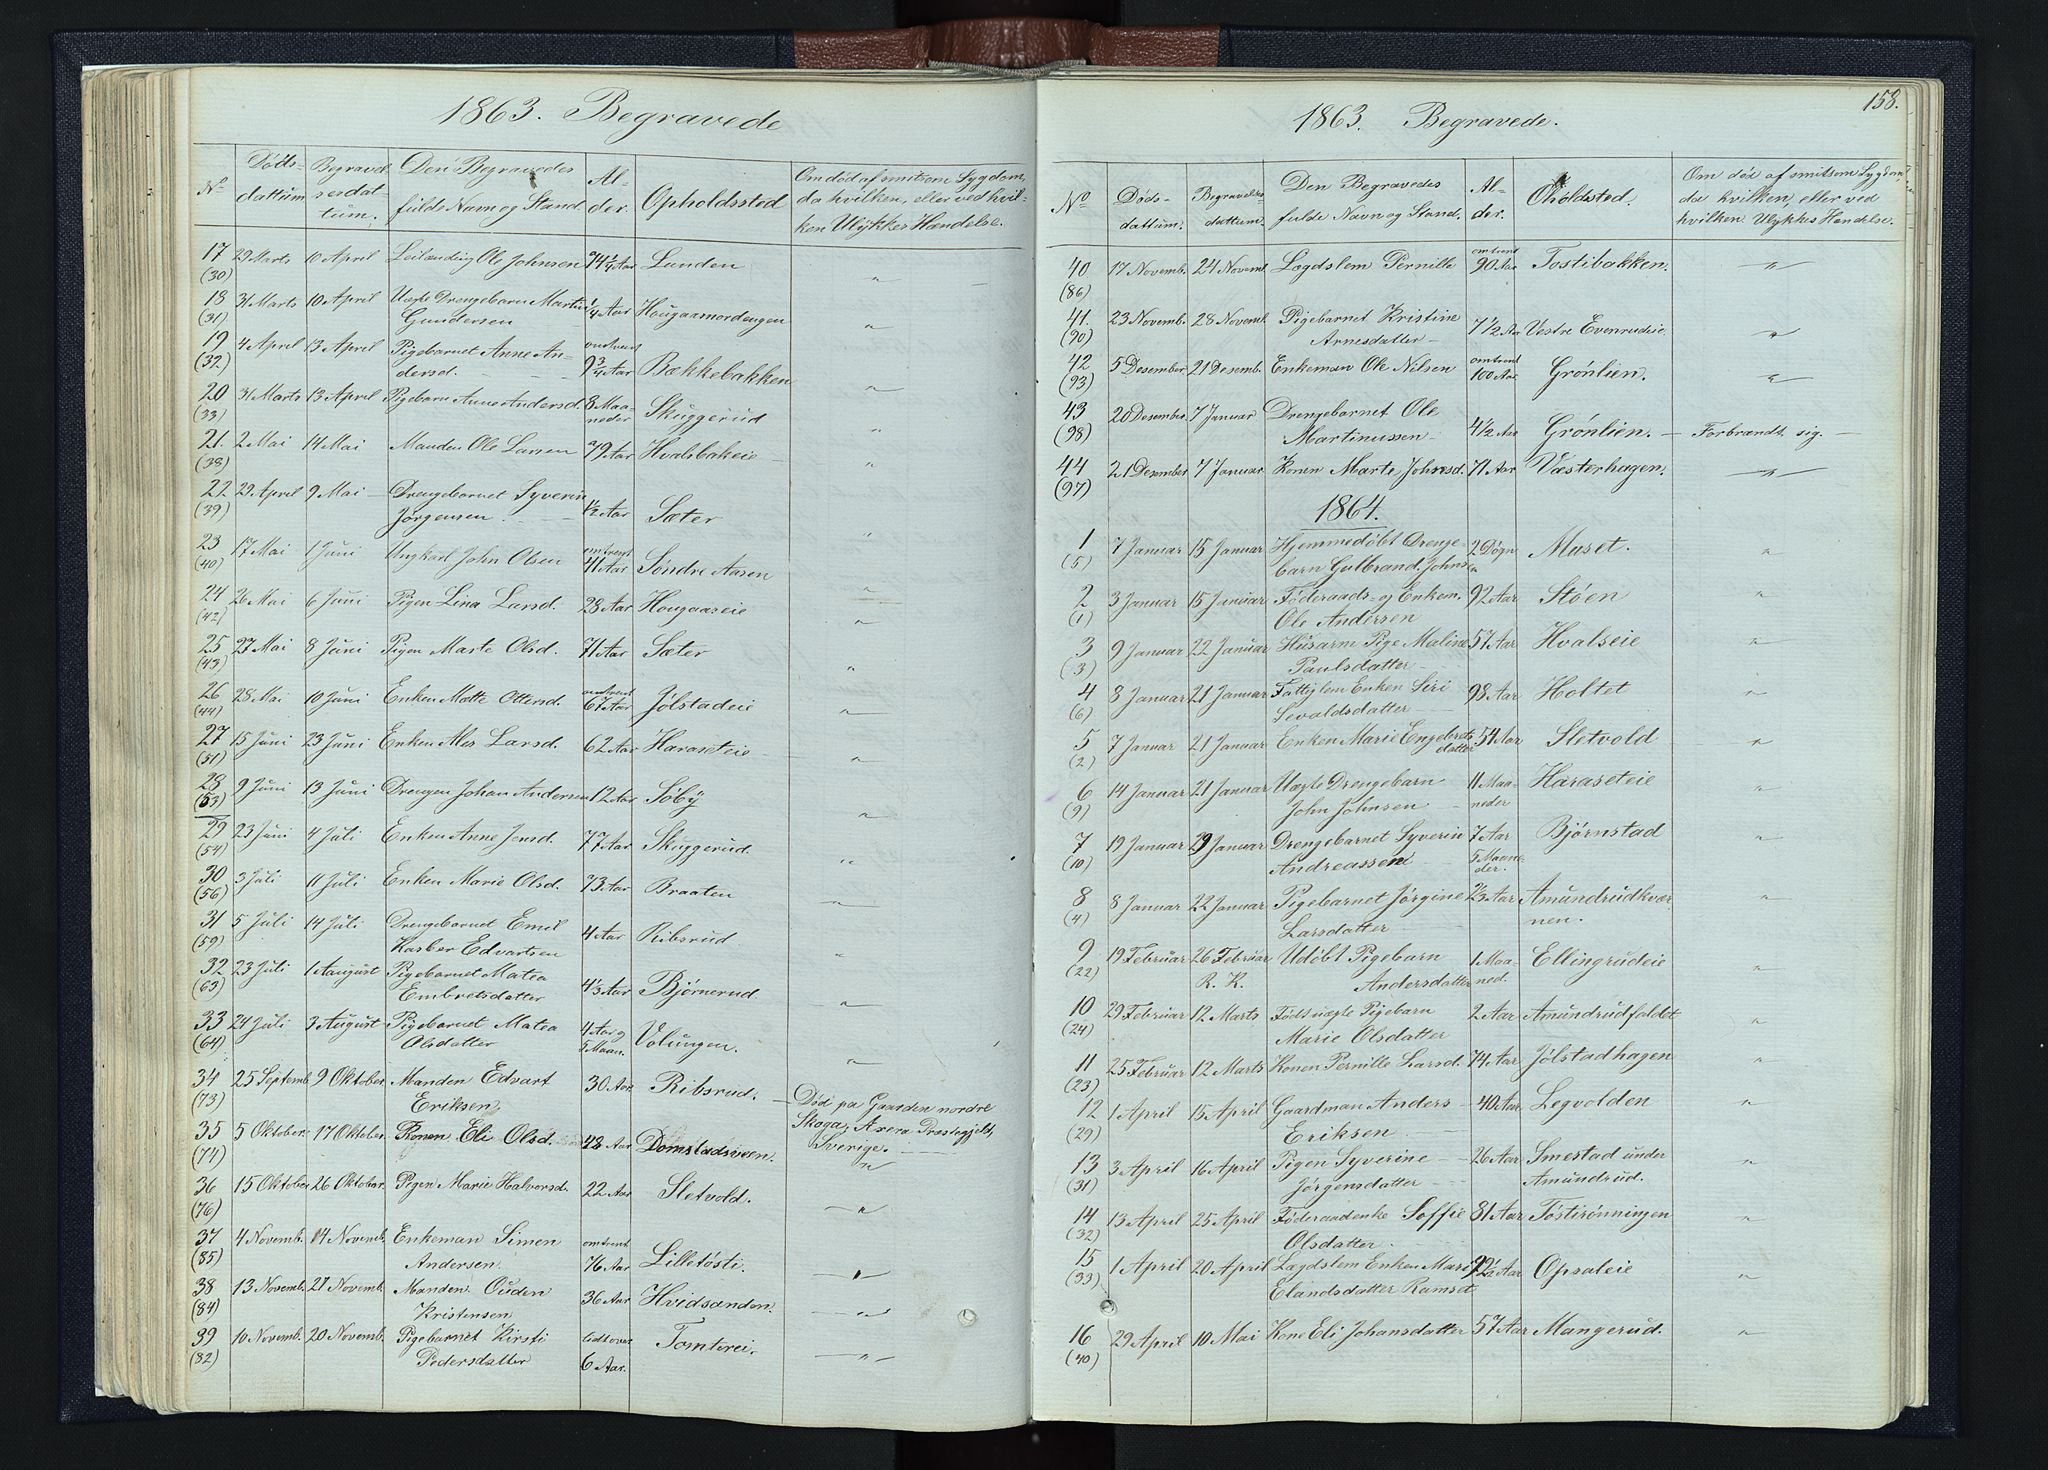 1863. Begravede
No
Døds-
dattum
Begravel
sesdat-
tum.
Den Begravedes
fulde Navn og Stand
Al-
der.
Opholdssted
Om død af smitsom Sygdom,
da hvilken, eller ved hvil-
ken Ulykkes Hændelse.
17 (30) 29 Marts 10 April Leilænding Ole Johnsen 74 1/4 Aar Lunden "
18 (31) 31 Marts 10 April Uægte Drengebarn Martin
Gundersen 1/4 Aar Hougaamordengen "
19 (32) 4 April 13 April Pigebarnet Anne An-
dersd. omtrent 9 3/4 Aar Bækkebakken "
20 (33) 31 Marts 13 April Pigebarn Anne Andersd. 8 Maa-
neder Skuggerud "
21. (38) 2 Mai 14 Mai Manden Ole Larsen 79 Aar Hvalsbakeie "
22 (39) 29 April 9 Mai Drengebarnet Syverin
Jørgensen. 1/2 Aar Sæter "
23 (40) 17 Mai 1 Juni Ungkarl John Olsen omtrent 41 Aar Søndre Aasen "
24 (42) 26 Mai 6 Juni Pigen Lina Larsd. 28 Aar Hougaareie "
25 (43) 27 Mai 8 Juni Pigen Marte Olsd. 71 Aar Sæter "
26 (44) 28 Mai 10 Juni Enken Matte Ottersd. omtrent 67 Aar Jølstadeie "
27 (51) 15 Juni 23 Juni Enken Ales Larsd. 62 Aar Haraseteie "
28 (53) 9 Juni 13 Juni Drengen Johan Andersen 12 Aar Søby "
29 (54) 23 Juni 4 Juli Enken Anne Jensd. 77 Aar Skuggerud. "
30 (56) 3 Juli 11 Juli Enken Marie Olsd. 73 Aar Braaten "
31 (59) 5 Juli 14 Juli Drengebarnet Emil
Kasber Edvartsen 4 Aar Ribsrud "
32 (63) 23 Juli 1 August Pigebarnet Matea
Embretsdatter 4 1/3 Aar Bjørnerud "
33 (64) 24 Juli 3 August Pigebarnet Matea
Olsdatter 4 Aar og
5 Maan. Volungen. "
34 (73) 25 Septemb. 9 Oktober. Manden Edvart
Eriksen 30 Aar Ribsrud. – Død pa Gaarden nordre
Skoga, Axera Præstegjeld,
Sverige.
35 (74) 5 Oktober. 17 Oktober. Konen Eli Olsd. 48 Aar Domstadsveen. "
36 (76) 15 Oktober 26 Oktober. Pigen Marie Halvorsd. 22 Aar Sletvold. "
37 (85) 4 Novemb. 14 Novemb. Enkeman Simen
Andersen. omtrent 76 Aar Lilletøsti. "
38 (84) 13 Novemb. 21 Novemb. Manden Ouden
Kristensen 36 Aar Hvidsanden. "
39 (82) 10 Novemb. 20 Novemb. Pigebarnet Kirsti
Pedersdatter lidt over
6 Aar. Tomterei. "
158.
1863. Begravede.
No
Døds-
dattum.
Begravelses
dattum.
Den Begravedes
fulde Navn og Stand.
Al-
der.
Oholdsted.
Om død af smitsom Sygdom,
da hvilken, eller ved
hvilken Ulykkes Hændelse.
40 (86) 17 Novemb. 24 Novemb. Lægdslem Pernille omtrent 90 Aar Tostibakken. "
41. (90) 23 Novemb. 28 Novemb. Pigebarnet Kristine
Arnesdatter 7 1/2 Aar Vestre Evenrudeie "
42 (93) 5 Desember 21 Desemb. Enkeman Ole Nilsen omtrent 100 Aar Grønlien. "
43 (98) 20 Desember. 7 Januar Drengebarnet Ole
Martinussen 4 1/2 Aar Grønlien. – Forbrændt sig. –
44 (97) 21 Desember 7 Januar Konen Marte Johnsd. 71 Aar Væsterhagen. "
1864.
1 (5) 7 Januar 15 Januar Hjemmedøbt Drenge-
barn Gulbrand Johnsen 2 Døgn Muset. "
2 (1) 3 Januar 15 Januar Føderaads- og Enkem.
Ole Andersen 92 Aar Støen "
3 (3) 9 Januar 22 Januar Husarm Pige Maline
Paulsdatter 57 Aar Hvalseie "
4 (6) 8 Januar 21 Januar Fattiglem Enken Siri
Sevaldsdatter 98 Aar Holtet "
5 (2) 7 Januar 21 Januar Enken Marie Engebrets
datter 54 Aar Sletvold "
6 (9) 14 Januar 21 Januar Uægte Drengebarn
John Johnsen 11 Maa-
neder Haraseteie "
7 (10) 19 Januar 29 Januar Drengebarnet Syverin
Andreassen 7 Aar
5 Maane-
der. Bjørnstad "
8 (4) 8 Januar 22 Januar Pigebarnet Jørgine
Larsdatter 2/3 Aar Amundrudkvær-
nen. "
9 (22) 19 Februar 26 Februar
R. K. Udøbt Pigebarn
Andersdatter 1 Maa-
ned. Ellingrudeie "
10 (24) 29 Februar 12 Marts Født uægte Pigebarn
Marie Olsdatter 2 Aar Amundrudfaldet "
11 (23) 25 Februar 12 Marts Konen Pernille Larsd. 74 Aar Jølstadhagen "
12 (29) 1 April 15 April Gaardman Anders
Eriksen 40 Aar Legvolden "
13 (31) 3 April 16 April Pigen Syverine
Jørgensdatter 26 Aar Smestad under
Amundrud. "
14 (32) 13 April 25 April Føderaadenke Soffie
Olsdatter 81 Aar Tøstirønningen "
15 (33) 1 April 20 April Lægdslem Enken Mari
Elandsdatter Ramset 92 1/2 Aar Opsaleie "
16 (40) 29 April 10 Mai Kone Eli Johansdatter 57 Aar Mangerud. "